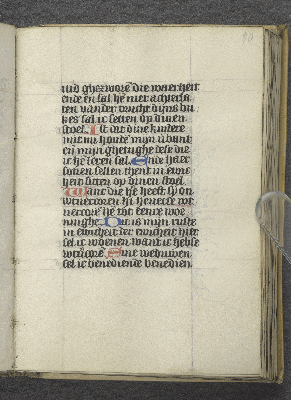 uid ghezworē die waerheit
ende en sal hē niet achterla
ten van der vrucht dijns bu
kes sal ic setten op dinen
stoel Ist dat dine kindere
mit mi houdē mijn verbont
en mijn ghetughe dese die
ic hē leren sal Ende haer
sonen sellen thent in ewic
heit sitten op dinen stoel
Want die he heeft syon
wtvercoren hi heeftse wt
vercorē hē tot eenre woe
ninghe Dit is mijn ruste
in ewicheit der ewicheit hier
sel ic wonen want ic hebse
vercorē Sine weduwen
sel ic benediende benedien